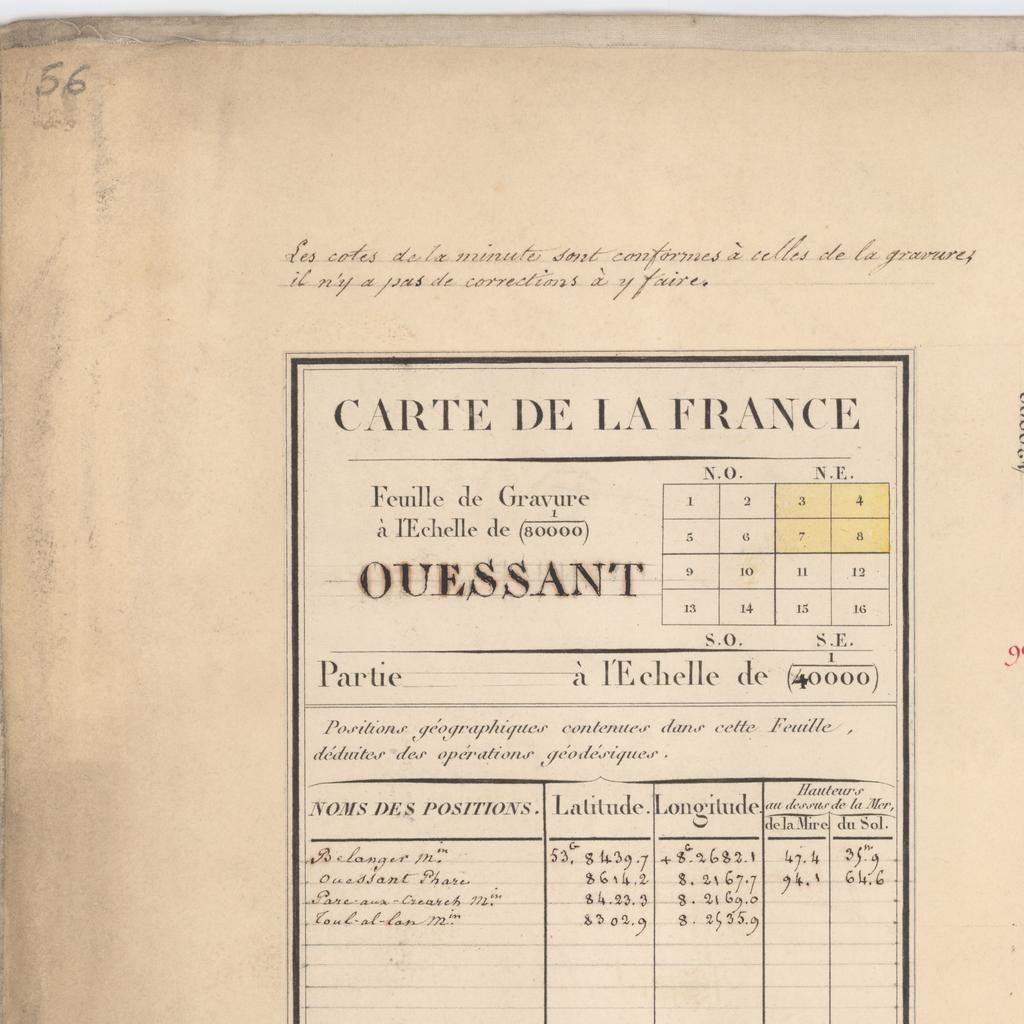 56
Les cotes de la minute sont conformes à celles de la gravure;
il n'y a pas de corrections à y faire.
CARTE DE LA FRANCE
Feuille de Gravure
à l'Echelle de (1/80000)
OUESSANT
N.O. N.E.
1 2 3 4
5 6 7 8
9 10 11 12
13 14 15 16
S.O. S.E.
Partie à l'Echelle de (1/40000)
Positions géographiques contenues dans cette Feuille,
déduites des opérations géodésiques.
NOMS DES POSITIONS. Latitude. Longitude. Hauteurs au dessus de la Mer,
de la Mire du Sol.
Belanger Min. 53G. 8439.7 +8G.2682.1 47.4 35m.9
Ouessant Phare 8614.2 8.2167.7 94.1 64.6
Parc-aux-Crearch Min. 84.23.3 8.2169.0
Toul-al-lan Min. 8302.9 8.2535.9